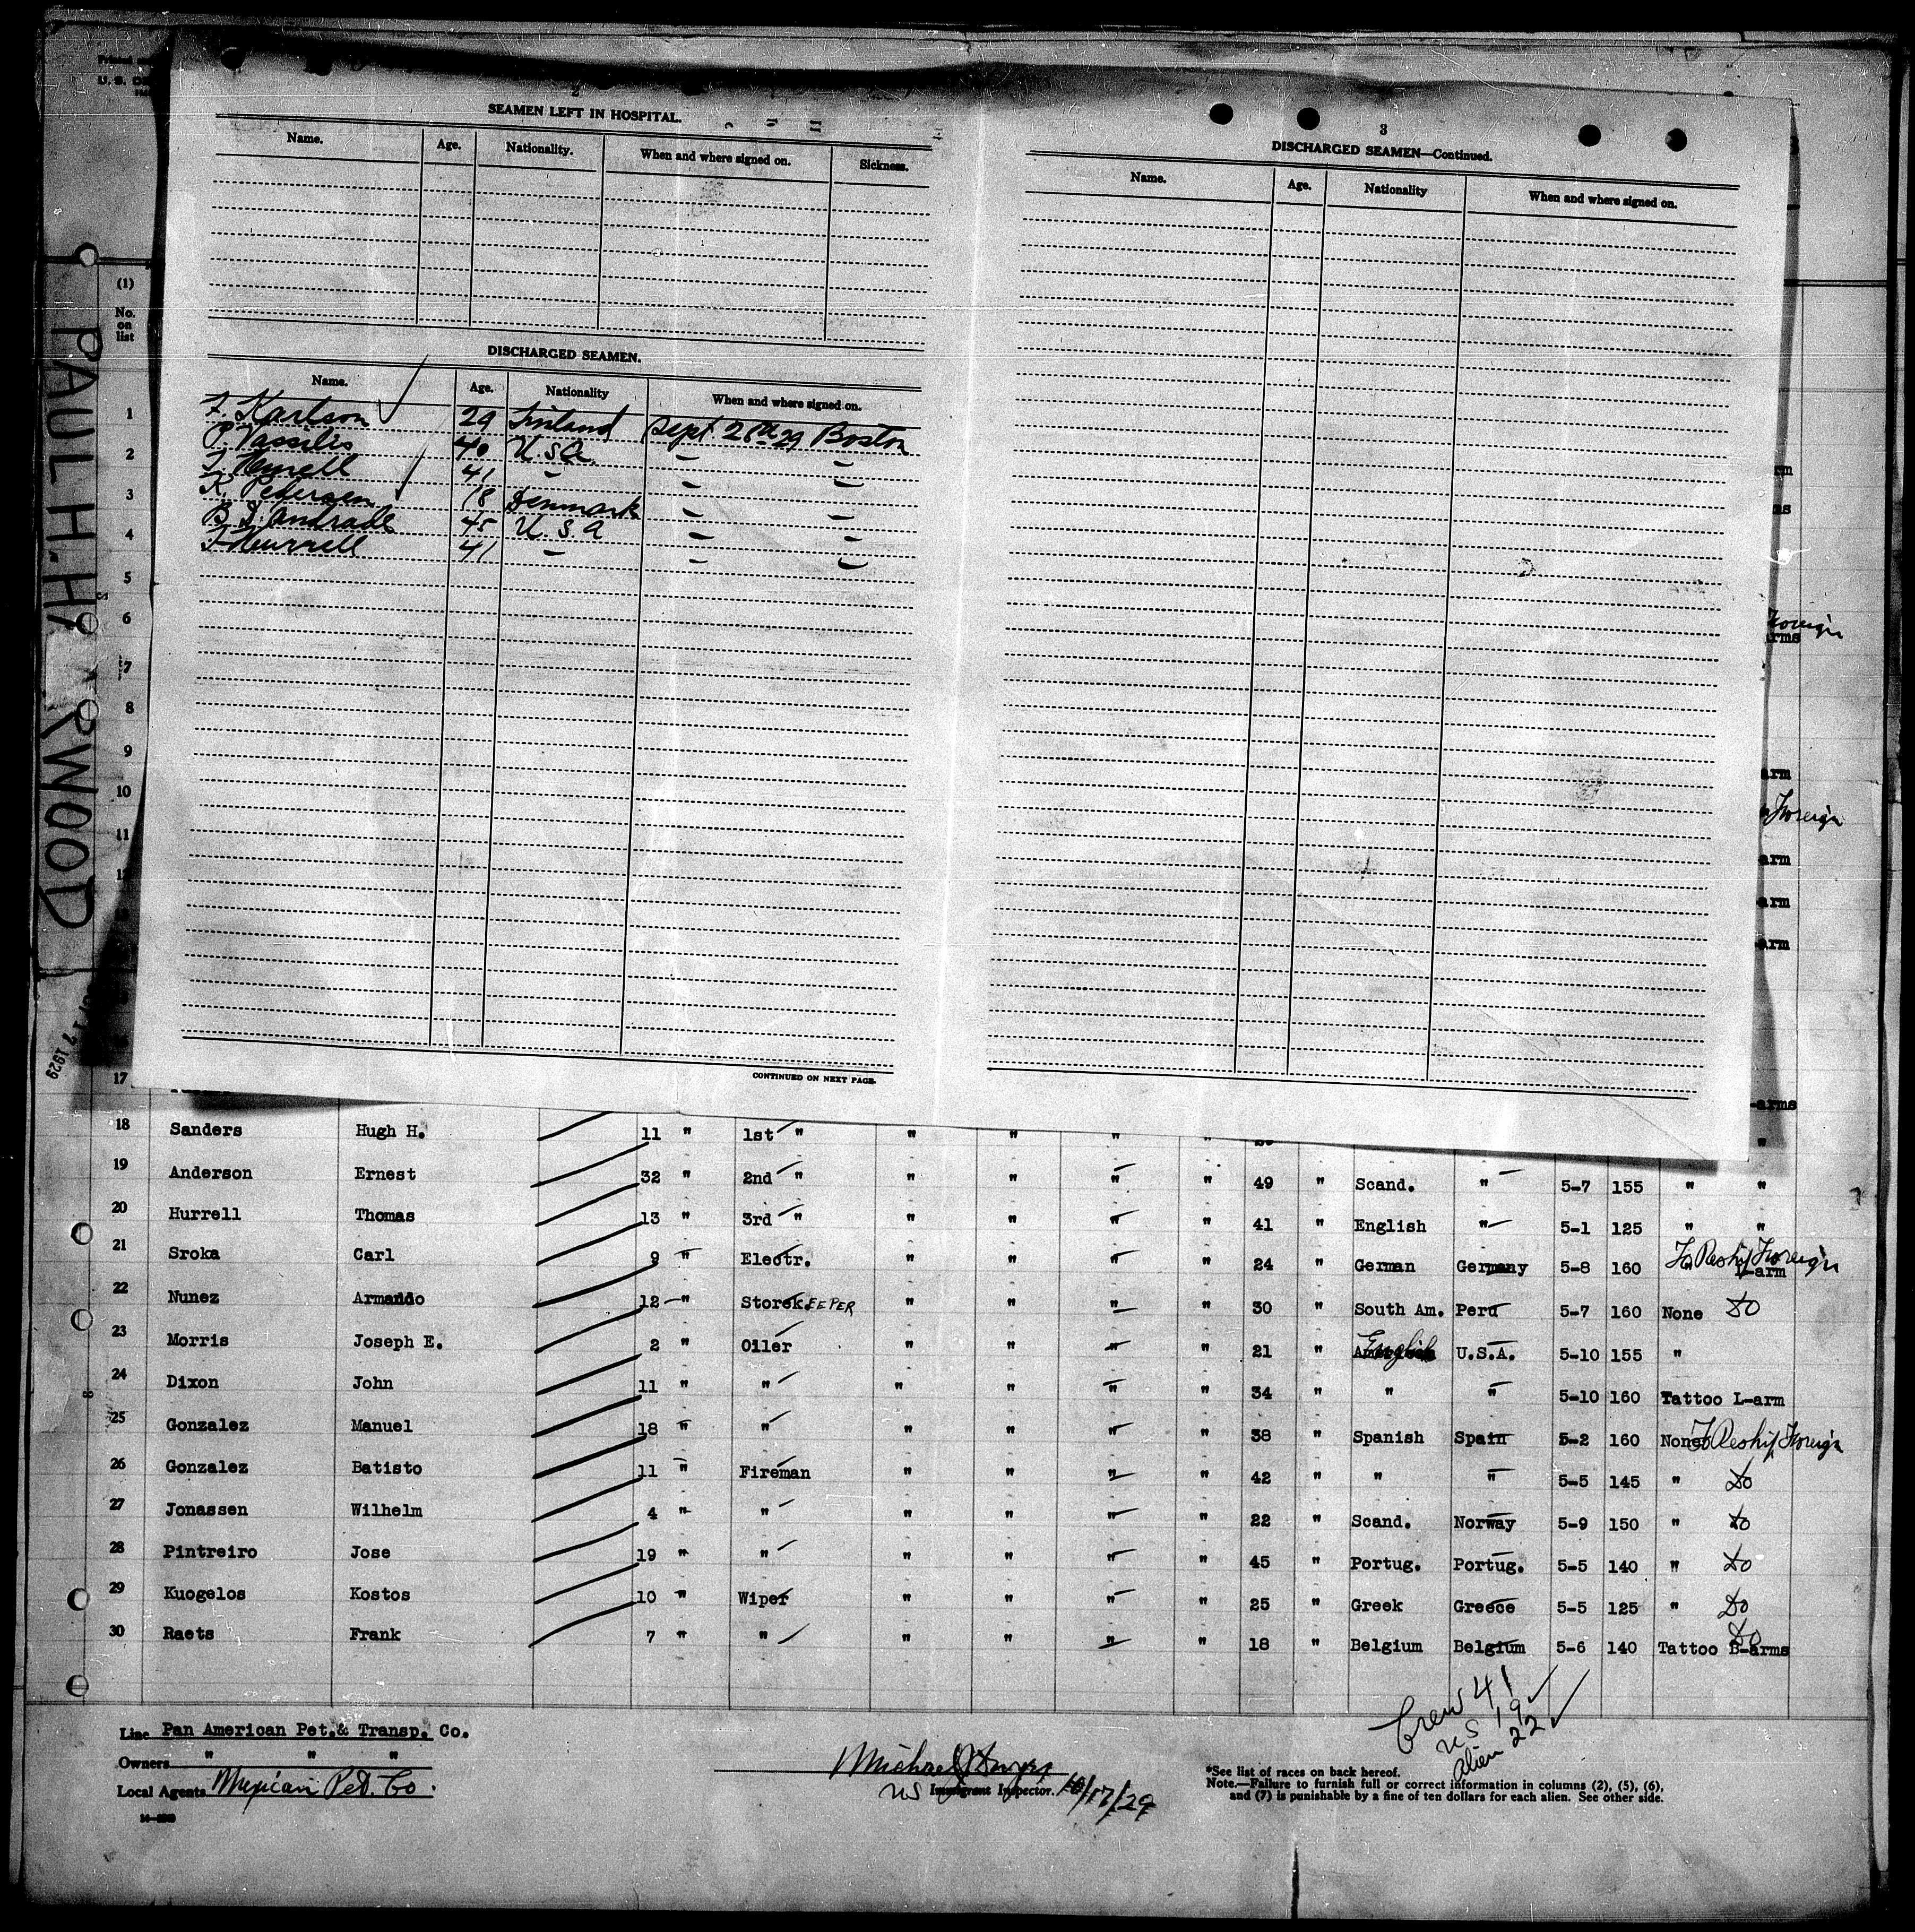 2
SEAMEN LEFT IN HOSPITAL.
Name. Age. Nationality. When and where signed on. Sickness.
DISCHARGED SEAMEN.
Name. Age. Nationality When and where signed on.
F. Karlson 29 Finland Sept 28th 29 Boston
P. Vassilis 40 U.S.A. " "
41 " " "
K. Petersen 18 Denmark " "
B. D. Andrade 45 U.S.A " "
T Hurrell 41 " " "
CONTINUED ON NEXT PAGE.
3
DISCHARGED SEAMEN—Continued.
Name. Age. Nationality When and where signed on.
PAUL H. H RWOOD
17 1929
(1)
No.
on
list
1
2
3
4
5
6
7
8
9
10
11
17
arms
Foreign
arm
Foreign
arm
arm
arm
-arms
18 Sanders Hugh H. 11 " 1st " " " " "
19 Anderson Ernest 32 " 2nd " " " " " 49 " Scand. " 5-7 155 " "
20 Hurrell Thomas 13 " 3rd " " " " " 41 " English " 5-1 125 " "
21 Sroka Carl 9 " Electr. " " " " 24 " German Germany 5-8 160 " To Reship Foreign L-arm
22 Nunez Armando 12 " StorekEEPER " " " " 30 " South Am. Peru 5-7 160 None Do
23 Morris Joseph E. 2 " Oiler " " " " 21 " English U.S.A. 5-10 155 "
24 Dixon John 11 " " " " " " 34 " " " 5-10 160 Tattoo L-arm
25 Gonzalez Manuel 18 " " " " " " 38 " Spanish Spain 5-2 160 None To Reship Foreign
26 Gonzalez Batisto 11 " Fireman " " " " 42 " " " 5-5 145 " Do
27 Jonassen Wilhelm 4 " " " " " " 22 " Scand. Norway 5-9 150 " Do
28 Pintreiro Jose 19 " " " " " " 45 " Portug. Portug. 5-5 140 " Do
29 Kuogelos Kostos 10 " Wiper " " " " 25 " Greek Greece 5-5 125 " Do
30 Raets Frank 7 " " " " " " 18 " Belgium Belgium 5-6 140 Tattoo B-arms Do
Crew 41
US 19
Alien 22
Line Pan American Pet.& Transp. Co.
Owners " " "
Local Agents Mexican Pet. Co.
Michael
US Immigrant Inspector. 10/17/29
*See list of races on back hereof.
Note.—Failure to furnish full or correct information in columns (2), (5), (6),
and (7) is punishable by a fine of ten dollars for each alien. See other side.